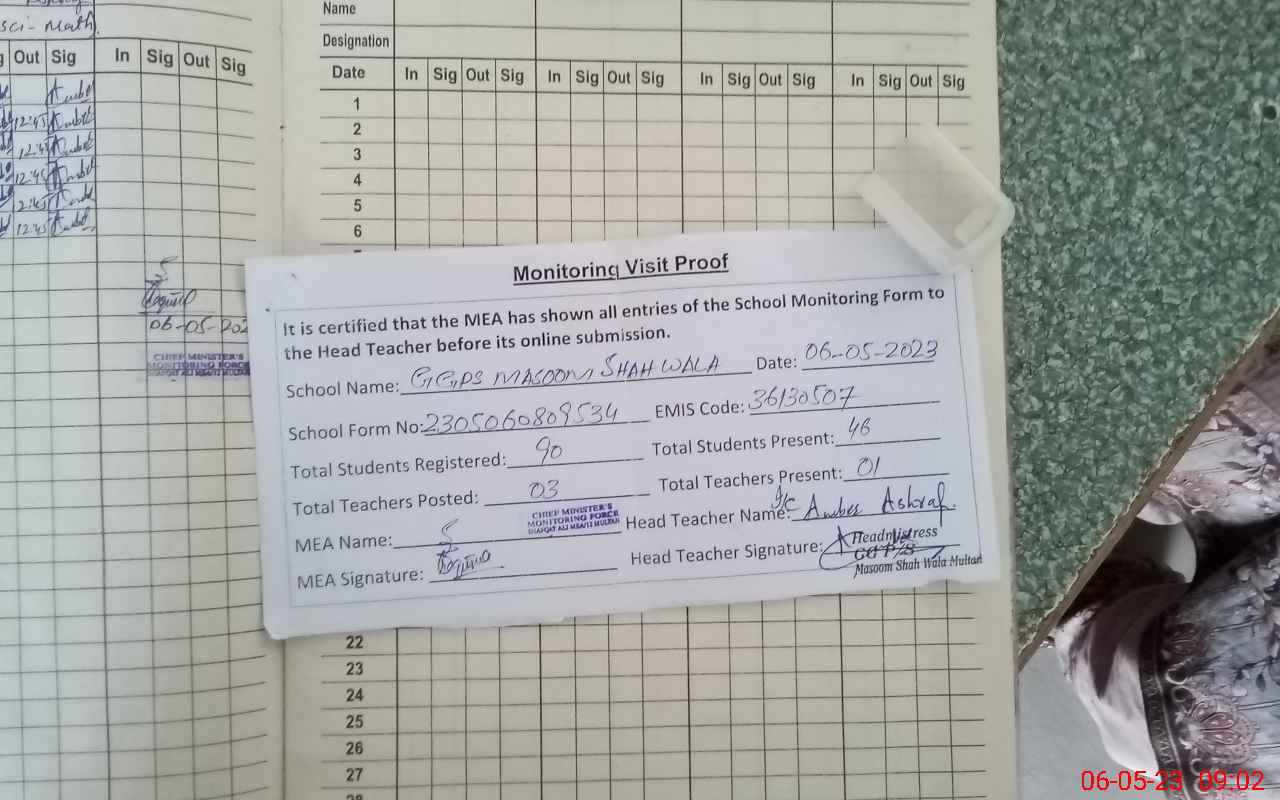 sci-Math.
Out Sig In Sig Out Sig
12:45
12:45
12:45
2:45
12:45
06-05-202
CHIEF MINISTER'S
MONITORING FORCE
Name
Designation
Date In Sig Out Sig In Sig Out Sig In Sig Out Sig In Sig Out Sig
1
2
3
4
5
6
Monitoring Visit Proof
It is certified that the MEA has shown all entries of the School Monitoring Form to
the Head Teacher before its online submission.
School Name: GGPS MASOOM SHAH WALA Date: 06-05-2023
School Form No: 2305060809534 EMIS Code: 36130507
Total Students Registered: 90 Total Students Present: 46
Total Teachers Posted: 03 Total Teachers Present: 01
MEA Name: CHIEF MINISTER'S
MONITORING FORCE
Head Teacher Name: I/C Amber Ashraf.
MEA Signature: Head Teacher Signature: Headmistress
Masoom Shah Wala Multan
22
23
24
25
26
27
28
06-05-23 09:02